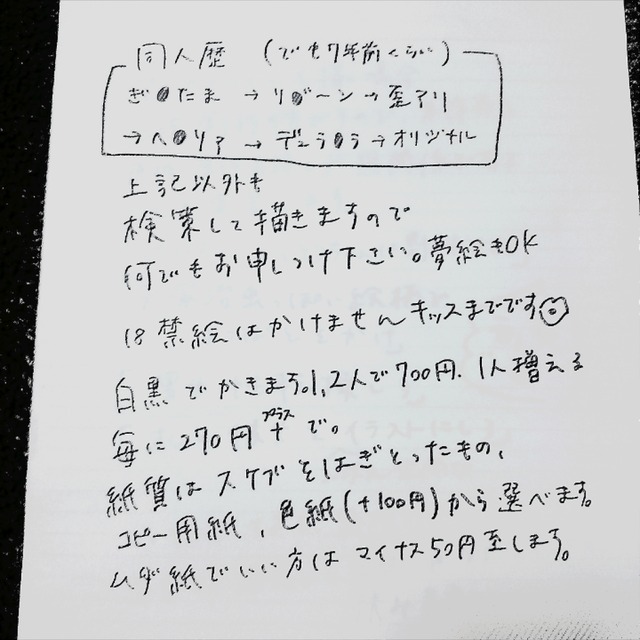 同人歴 (でも7年前くらい)
ぎ●たま → リ●ーン → 歪アリ
→ ヘ●リア → デュラ●ラ → オリジナル
上記以外も
検索して描きますので
何でもお申しつけ下さい。夢絵もOK
18禁絵はかけませんキッスまでです
白黒でかきます。1,2人で700円、1人増える
毎に270円+プラスで。
紙質はスケブをはぎとったもの、
コピー用紙、色紙(+100円)から選べます。
ムダ紙でいい方はマイナス50円至します。